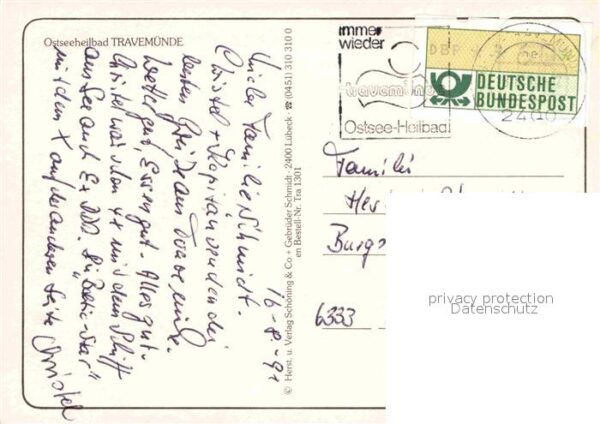 Ostseeheilbad TRAVEMÜNDE
16.-8.-91
Familie Schmidt.
Christel + Kapitän senden die
besten Grüße aus Travemünde.
Wetter gut, Essen gut. Alles gut.
Christel war schon 4x mit dem Schiff
aus See auch
mit dem X auf der anderen Seite Christel
© Herst. u. Verlag Schöning & Co + Gebrüder Schmidt · 2400 Lübeck · ☎ (0451) 310 310 0
en Bestell-Nr. Tra 1301
immer
wieder
travemünde
Ostsee-Heilbad
DBP
DEUTSCHE
BUNDESPOST
2400
Familie
Burgs
6333
privacy protection
Datenschutz